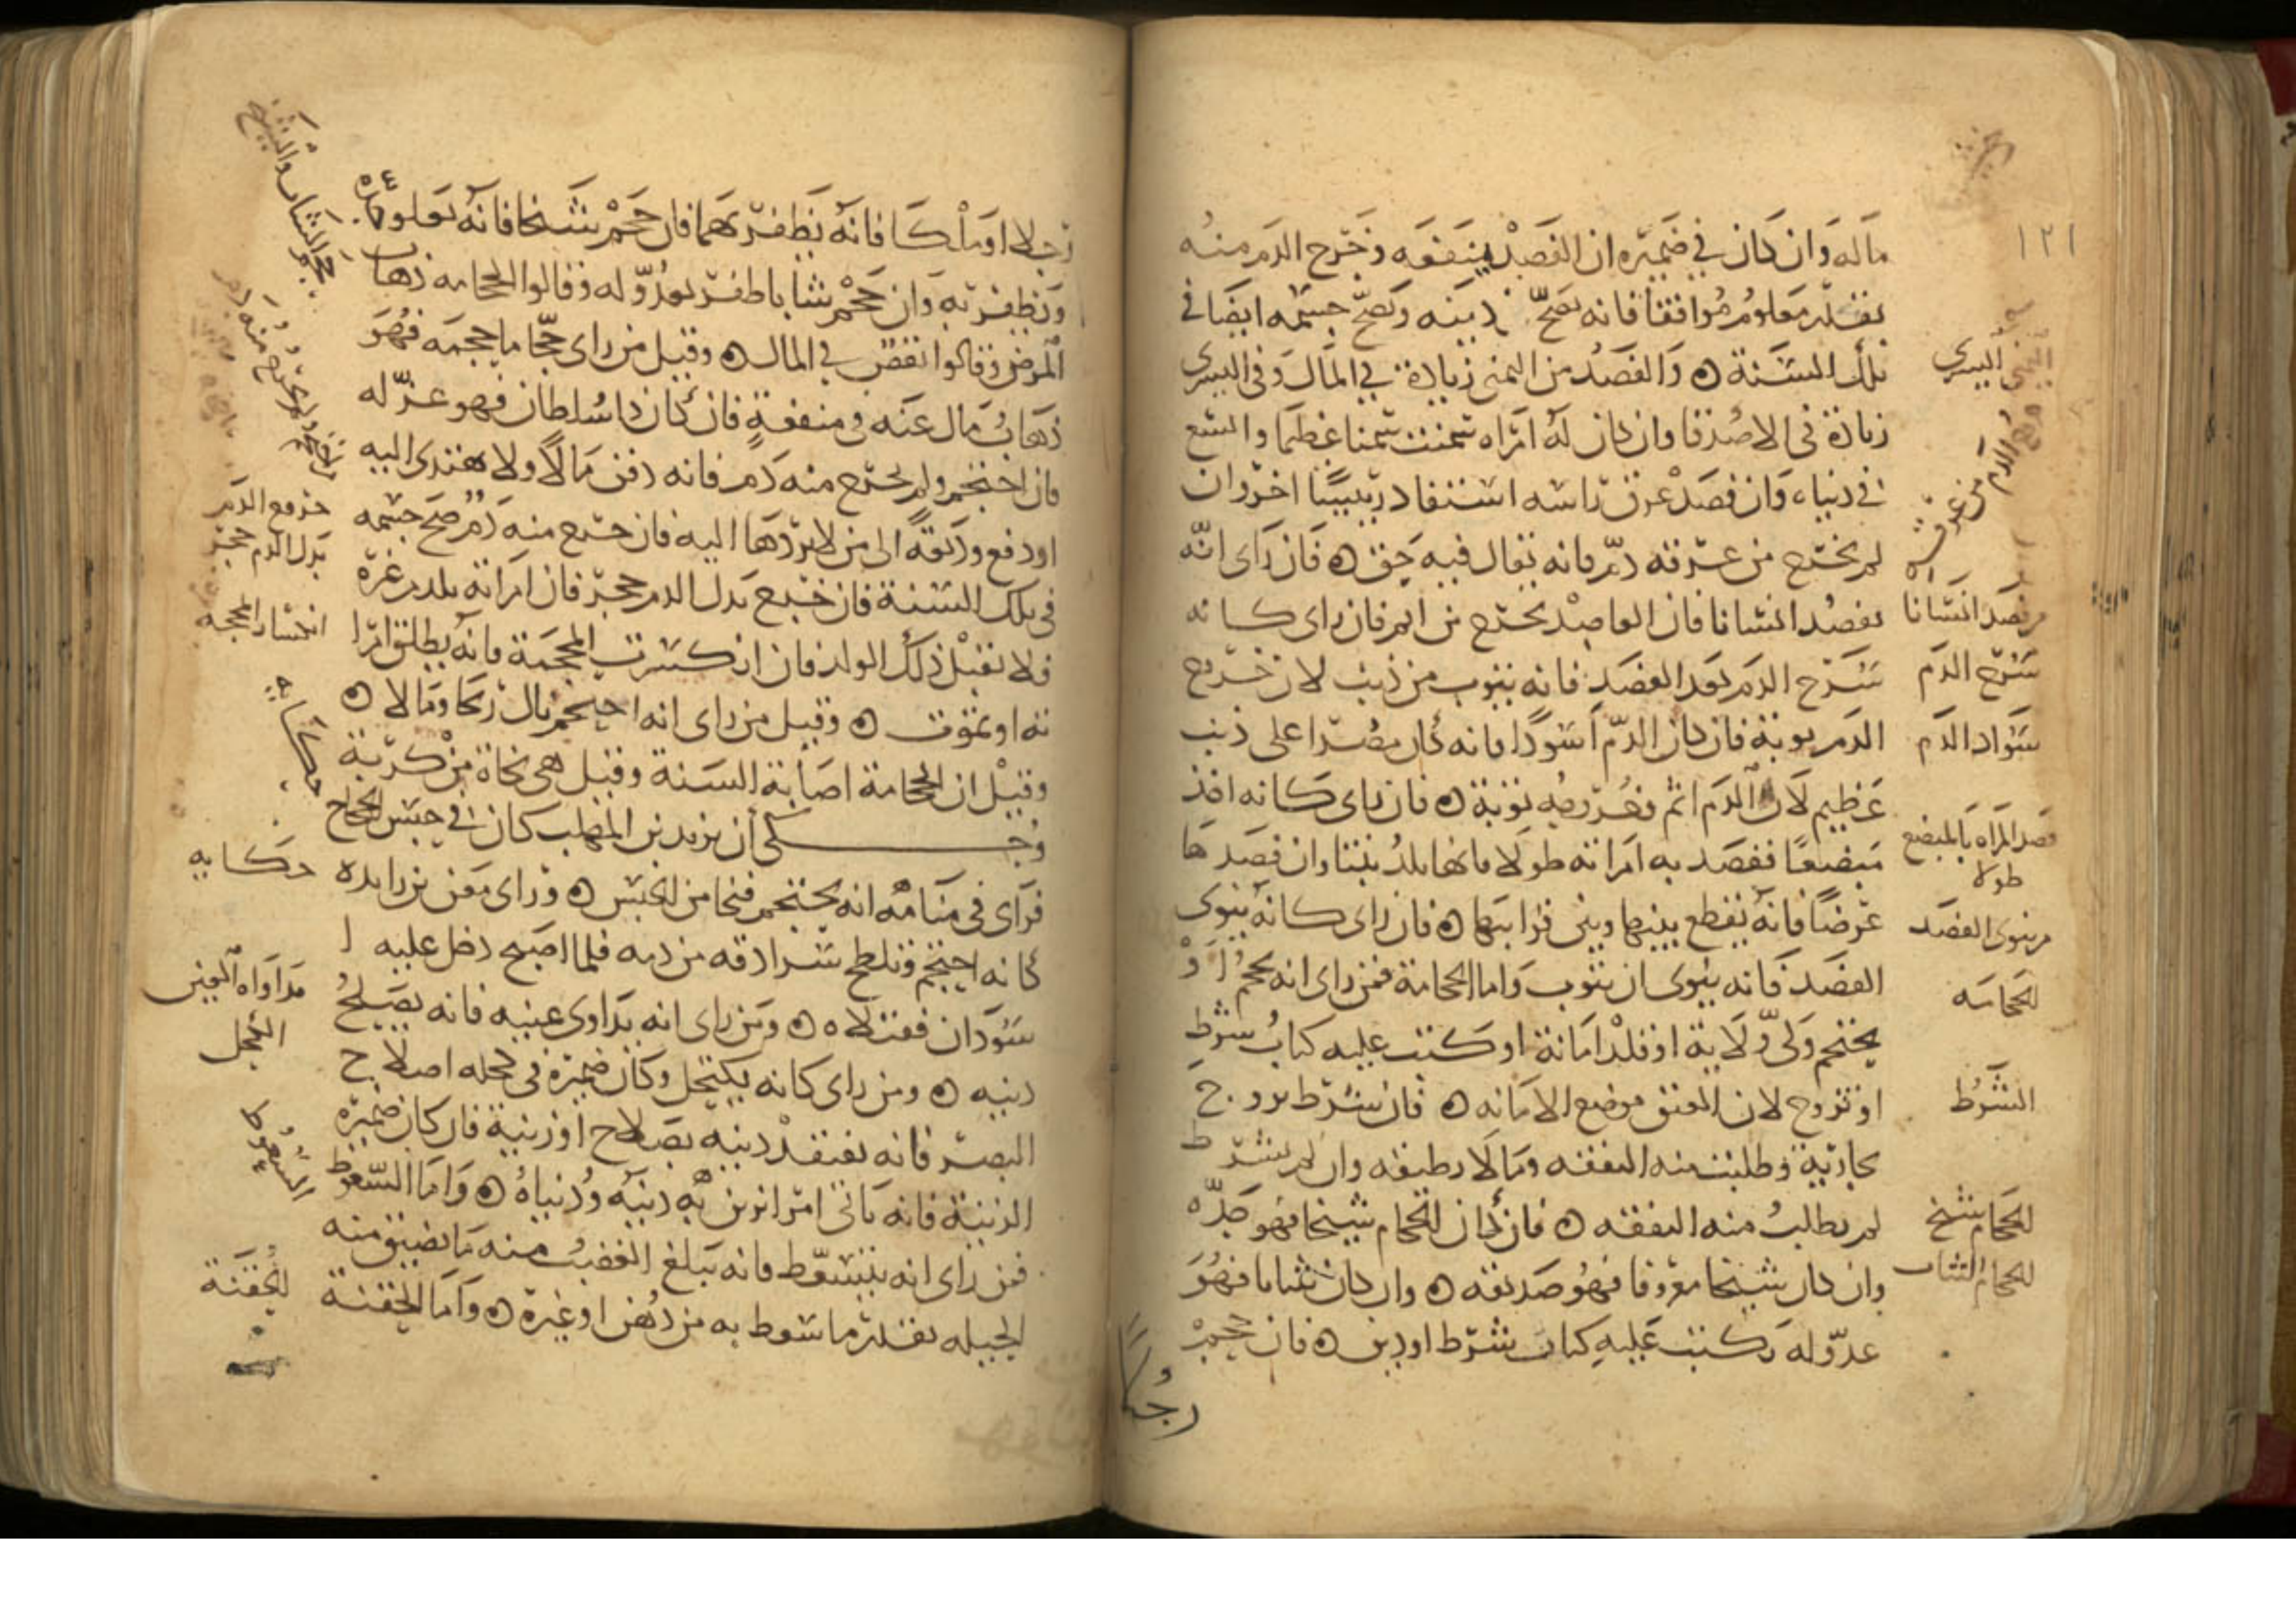 ١٢١
ماله وان كان في ضميره ان الفصد ينفعه وخرج الدم منه
بقدر معلوم موافقا فانه يصح دينه ويصح جسمه ايضا في
تلك السنة ه والفصد من اليمنى زيادة في المال وفي اليسرى
زيادة في الاصدقا وان كان له امراه سمنت سمنا عظيما واتسع
في دنياه وان فصد عرق راسه استفاد رييسا اخر وان
لم يخرج من عرقه دم فانه يقال فيه حق ه فان راى انه
يفصد انسانا فان الفاصد يخرج من اثم فان راى كانه
سرح الدم بعد الفصد فانه يتوب من ذنب لان خروج
الدم توبة فان كان الدم اسودا فانه كان مصرا على ذنب
عظيم لان الدم اثم وخروجه توبة ه فان راى كانه اخذ
مبضعا ففصد به امراته طولا فانها تلد بنتا وان فصدها
عرضا فانه يقطع بينها وبين قرابتها ه فان راى كانه ينوى
الفصد فانه ينوى ان يتوب واما الحجامة فمن راى انه يحجم او
يحتجم ولى ولاية او قلد امانة او كتب عليه كتاب شرط
او تزوج لان العنق موضع الامانه ه فان شرط تزوج
بجارية وطلبت منه النفقه ومالا يطيقه وان لم يشرط
لم يطالب منه النفقه ه فان كان الحجام شيخا فهو جده
وان كان شيخا معروفا فهو صديقه ه وان كان شابا فهو
عدو له يكتب عليه كتاب شرط او دين ه فان حجم
رجلا
اليسرى
من فصد انسانا
سرح الدم
سواد الدم
فصد المراه بالمبضع
طولا
من ينوى الفصد
الحجامه
الشرط
الحجام شيخ
الحجام الشاب
رجلا او ملكا فانه يظفر بهما فان حجم شيخا فانه يعلو
ويظفر به وان حجم شابا ظفر بعدو له وقالوا الحجامه ذهاب
المرض وقالوا نقص في المال ه وقيل من راى حجاما حجمه فهو
ذهاب مال عنه في منفعة فان كان ذا سلطان فهو عز له
فان احتجم ولم يخرج منه دم فانه دفن مالا ولا يهتدى اليه
او دفع وديعة الى من لا يردها اليه فان خرج منه دم صح جسمه
في تلك السنة فان خرج بدل الدم حجر فان امراته تلد من غيره
فلا يقبل ذلك الولد فان انكسرت المحجمة فانه يطلق امرا
ته او تموت ه وقيل من راى انه احتجم نال ربحا ومالا ه
وقيل ان الحجامة اصابة السنة وقيل هي نجاة من كربة
وحكى أن يزيد بن المهلب كان في حبس الحجاج
فراى في منامه انه يحتجم فنجا من الحبس ه وراى معن بن زايده
كانه احتجم وتلطخ سرادقه من دمه فلما اصبح دخل عليه ا
سودان فقتلاه ه ومن راى انه يداوى عينيه فانه يصلح
دينه ه ومن راى كانه يكتحل وكان ضميره في كحله اصلاح
البصر فانه يفتقد دينه بصلاح او زينية فان كان ضميره
الزينية فانه ياتى امرا يزين به دينه ودنياه ه واما السعوط
فمن راى انه يتسعط فانه يبلغ الغضب منه ما يضيق منه
الحيله بقدر ما سعط به من دهن او غيره ه واما الحقنة
حجم الشاب والشيخ
احتجم ولم يخرج منه دم
خروج الدم
بدل الدم حجر
انكسار المحجمه
حكايه
حكايه
مداواه العين
الكحل
السعوط
الحقنة